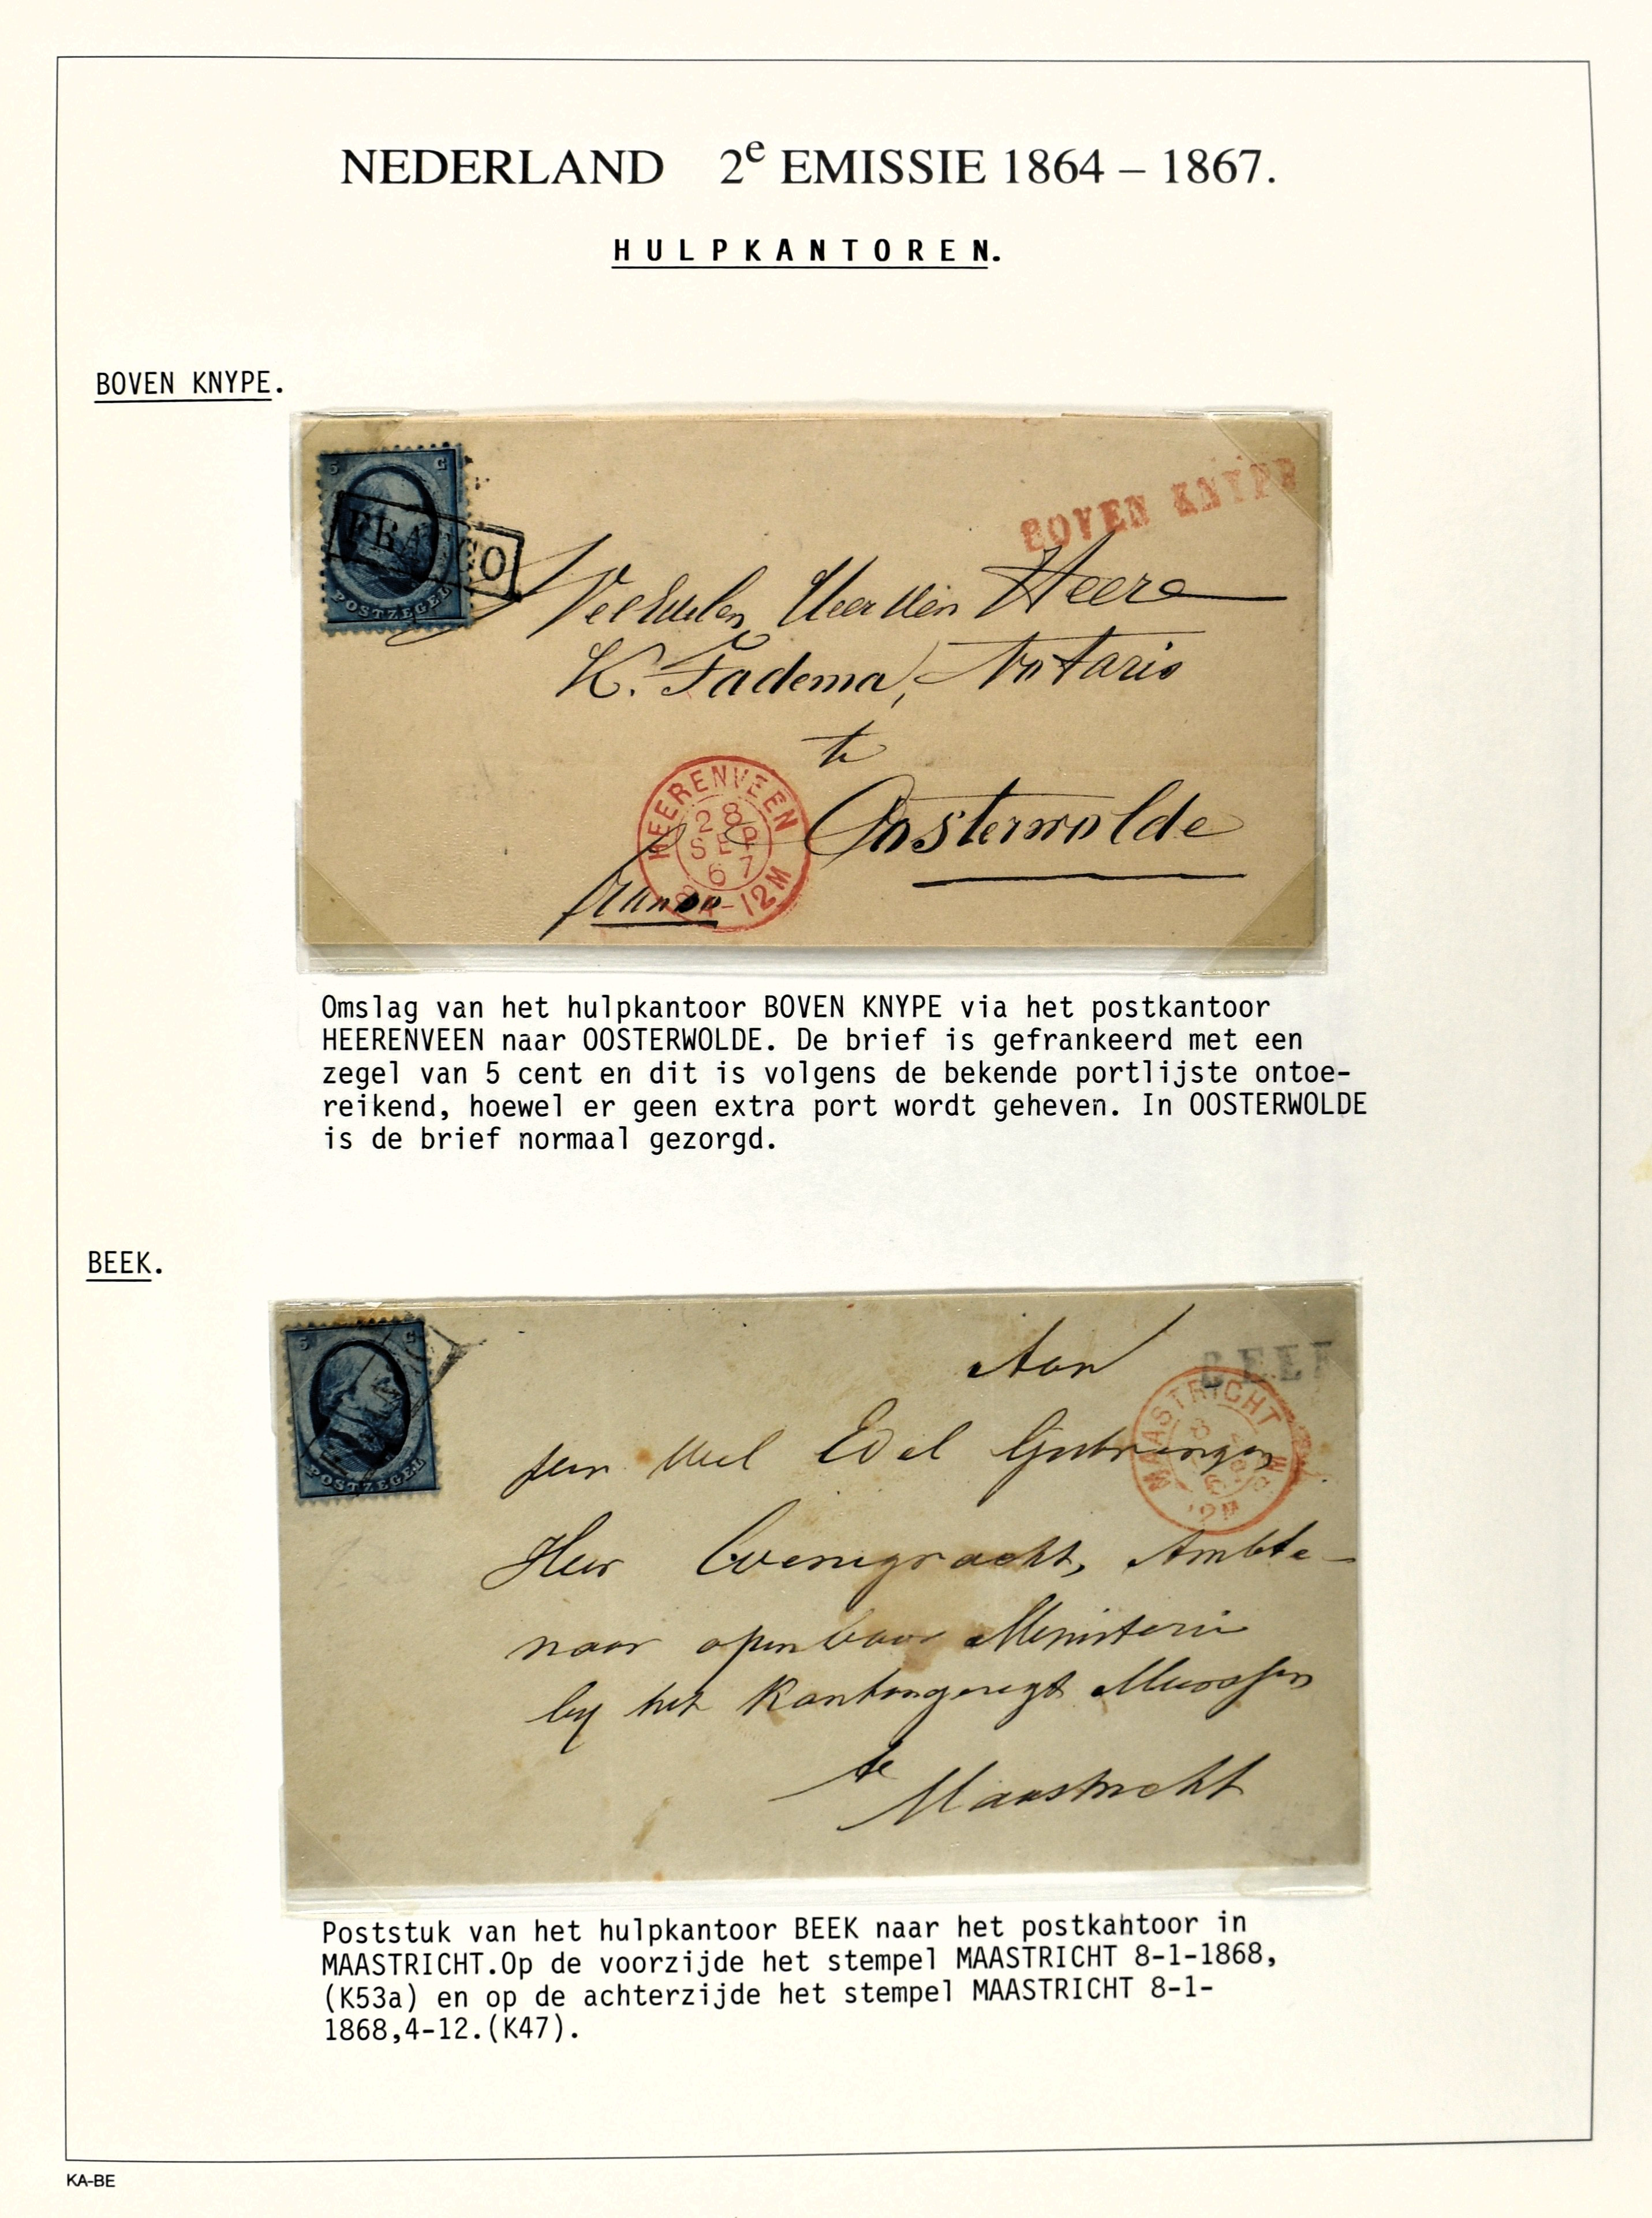 NEDERLAND 2e EMISSIE 1864 – 1867.
HULPKANTOREN.
BOVEN KNYPE.
5 C
FRANCO
POSTZEGEL
BOVEN KNYPE
Heere
K. Fadema, Notaris
te
Oosterwolde
franco
HEERENVEEN
28
SEP
67
-12M
Omslag van het hulpkantoor BOVEN KNYPE via het postkantoor
HEERENVEEN naar OOSTERWOLDE. De brief is gefrankeerd met een
zegel van 5 cent en dit is volgens de bekende portlijste ontoe-
reikend, hoewel er geen extra port wordt geheven. In OOSTERWOLDE
is de brief normaal gezorgd.
BEEK.
5 C
POSTZEGEL
BEEK
Aan
MAASTRICHT
8
den Wel Edel
Heer Ambte-
naar openbaar Ministerie
bij het Kantongeregt Meerssen
te
Maastricht
Poststuk van het hulpkantoor BEEK naar het postkahtoor in
MAASTRICHT.Op de voorzijde het stempel MAASTRICHT 8-1-1868,
(K53a) en op de achterzijde het stempel MAASTRICHT 8-1-
1868,4-12.(K47).
KA-BE